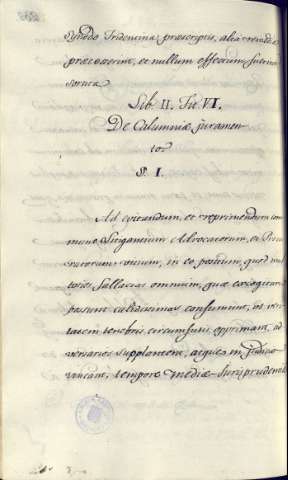 Synodo Tridentina præscriptis, alia
præceperint, et nullum effectum
Lib. II. Tit VI.
De Calumniæ juramen-
to.
§. I.
Ad evitandum, et reprimendum com-
mune Litigantium Advocatorum, et Procu-
ratorum vitium, in eo positum, quod
fallacias omnium, quæ excogitari
possunt calidissimas consumunt, ut veri-
tatem tenebris circumfusis opprimant, ad-
versarios supplantent, atque in Judicio
vincant, tempore mediæ Jurisprudentiæ